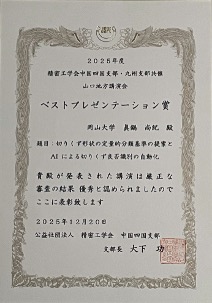 2025年度
精密工学会中国四国支部・九州支部共催
山口地方講演会
ベストプレゼンテーション賞
岡山大学 真鍋 尚紀 殿
題目：切りくず形状の定量的分類基準の提案と
AIによる切りくず良否識別の自動化
貴殿が発表された講演は厳正な
審査の結果 優秀と認められましたので
ここに表彰致します
2025年12月20日
公益社団法人 精密工学会 中国四国支部
支部長 大下 功